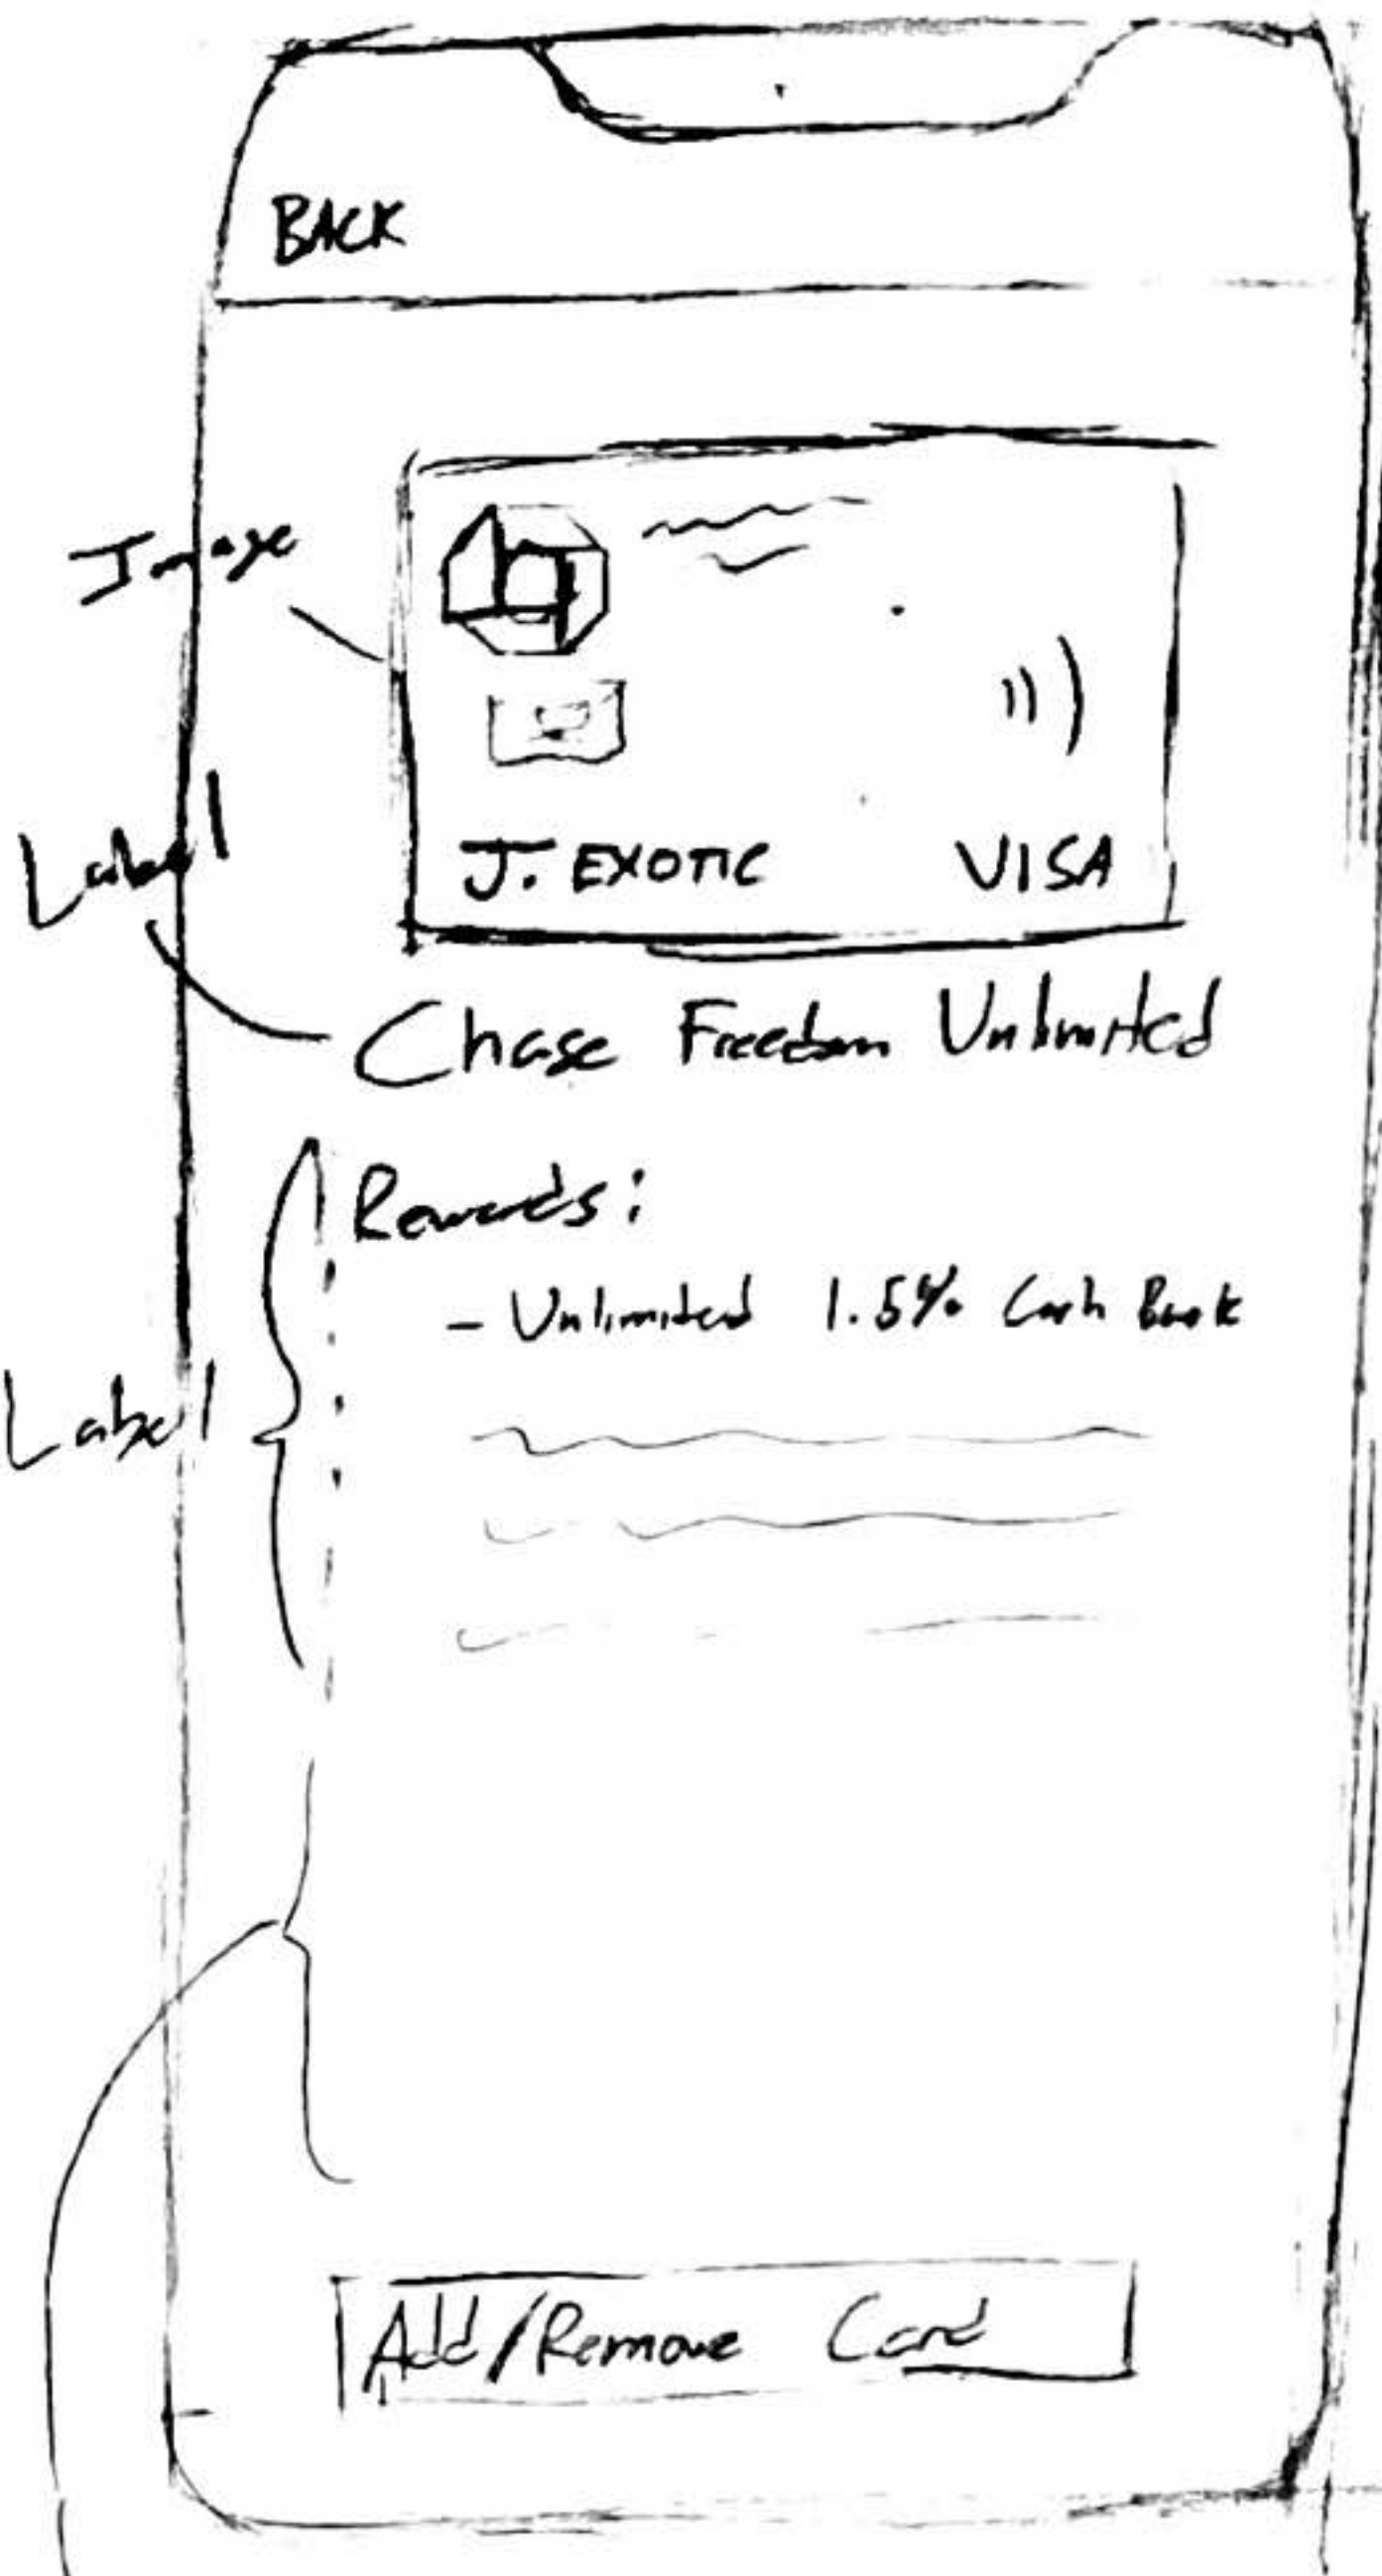 BACK
Image
J. EXOTIC VISA
Label
Chase Freedom Unlimited
Rewards:
- Unlimited 1.5% Cash Back
Label
Add/Remove Card